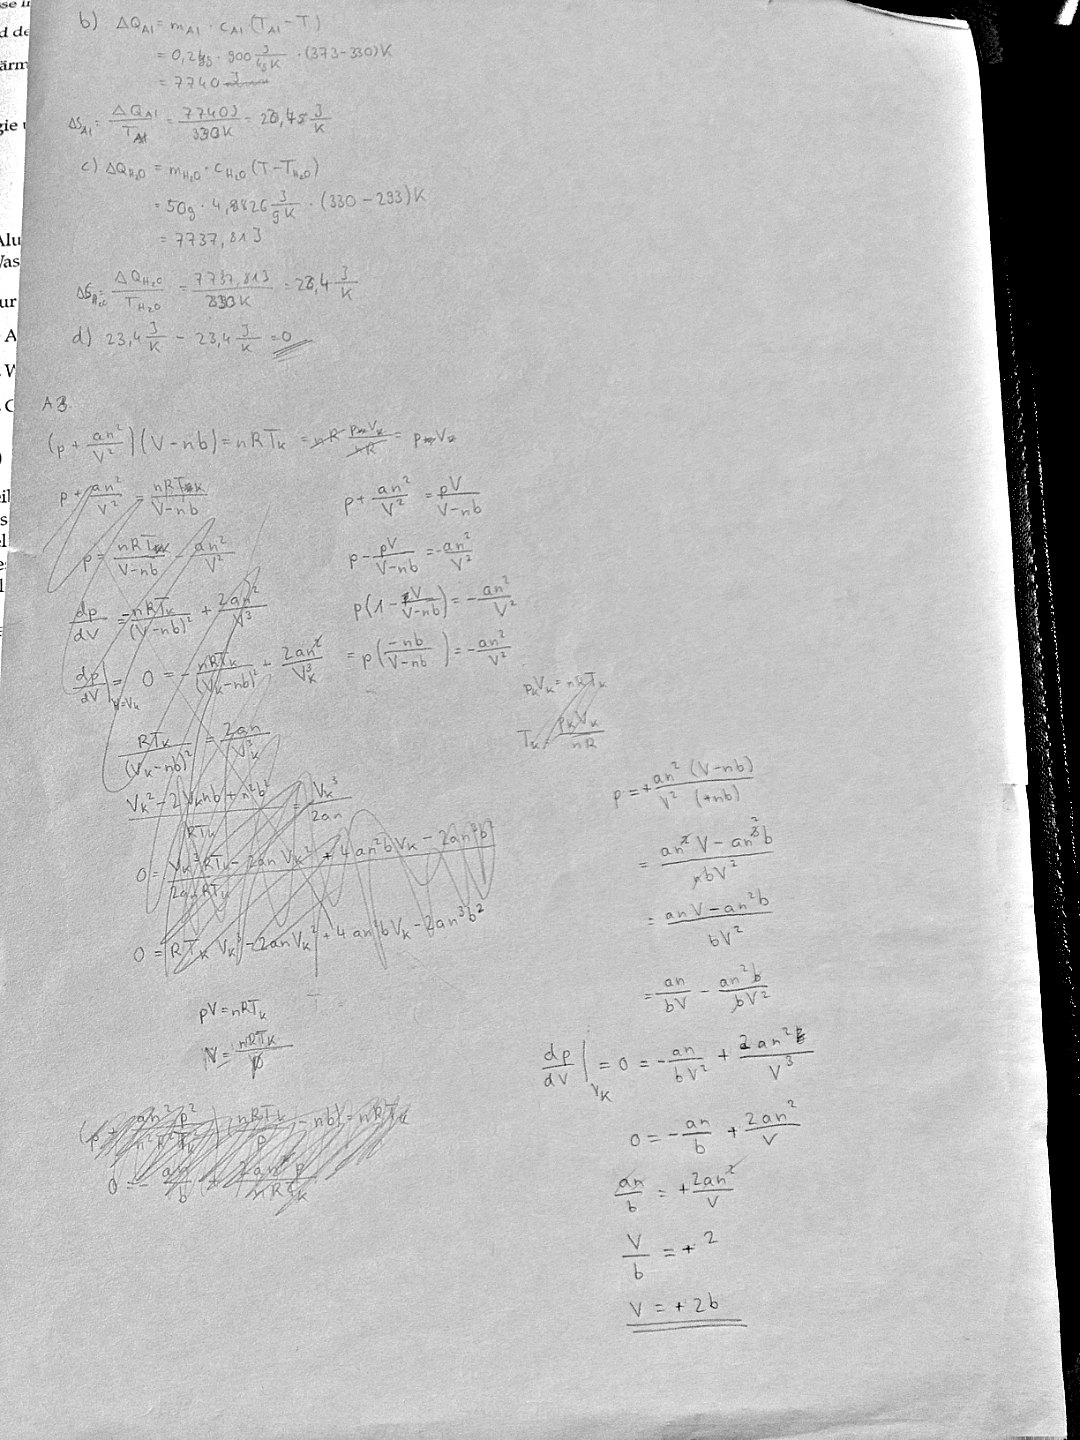 b) ΔQ_Al = m_Al · c_Al (T_Al − T)
= 0,2kg · 900 J/kgK · (373−330)K
= 7740 J
ΔS_Al = ΔQ_Al/T_Al = 7740J/330K = 23,45 J/K
c) ΔQ_H₂O = m_H₂O · c_H₂O (T−T_H₂O)
= 50g · 4,1826 J/gK · (330 − 293)K
= 7737,81J
ΔS_H₂O = ΔQ_H₂O/T_H₂O = 7737,81J/330K = 23,4 J/K
d) 23,4 J/K − 23,4 J/K = 0
A3
(p + an²/V²)(V − nb) = nRT_k = nR p V_k/nR = p V_k
p + an²/V² = nRT_k/V−nb
p = nRT_k/V−nb − an²/V²
dp/dV = −nRT_k/(V−nb)² + 2an²/V³
dp/dV|V=V_k = 0 = −nRT_k/(V_k−nb)² + 2an²/V_k³
RT_k/(V_k−nb)² = 2an/V_k³
V_k² − 2V_k nb + n²b²/RT_k = V_k³/2an
0 = V_k³RT_k − 2anV_k² + 4an²bV_k − 2an³b²/2anRT_k
0 = RT_k V_k³ − 2anV_k² + 4an²bV_k − 2an³b²
pV = nRT_k
V = nRT_k/p
p + an²/V² = pV/V−nb
p − pV/V−nb = −an²/V²
p(1 − V/V−nb) = −an²/V²
= p(−nb/V−nb) = −an²/V²
p_kV_k = nRT_k
T_k = p_kV_k/nR
p = + an² (V−nb)/V² (+nb)
= an²V − an³b/nbV²
= anV − an²b/bV²
= an/bV − an²b/bV²
dp/dV|V_k = 0 = −an/bV² + 2an²/V³
0 = −an/b + 2an²/V
an/b = +2an²/V
V/b = + 2
V = + 2b